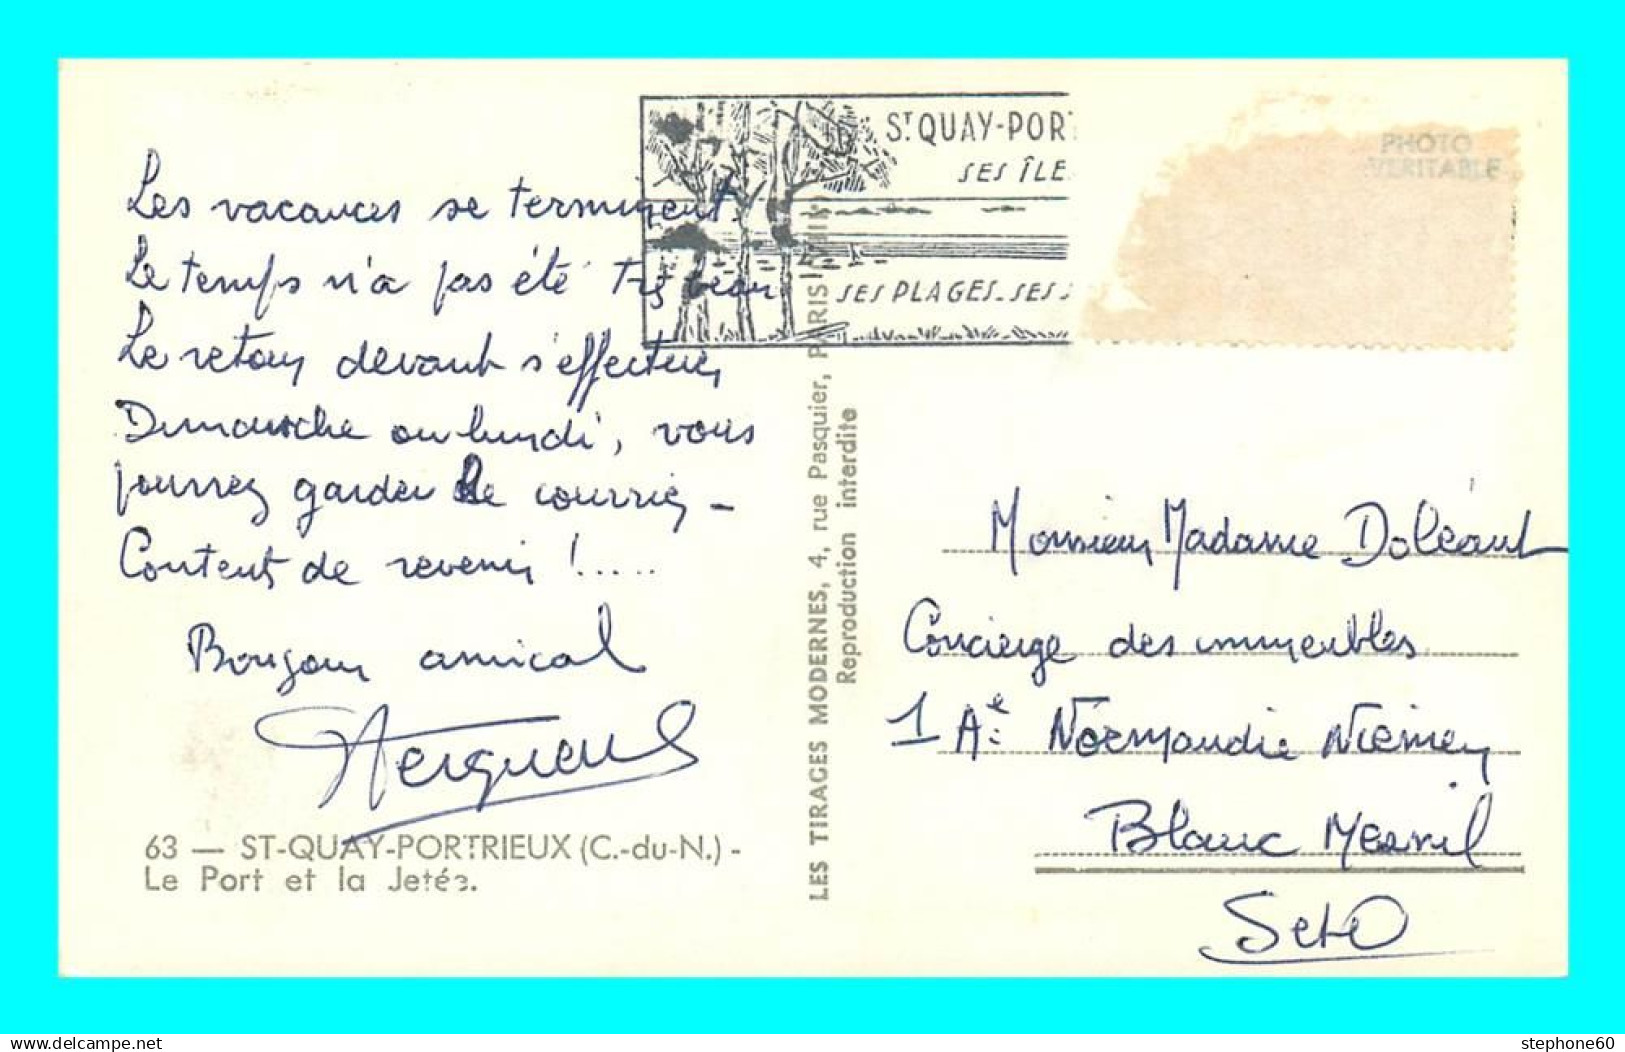 Les vacances se terminent.
Le temps n'a pas été très beau
Le retour devant s'effectuer
Dimanche ou lundi, vous
pourrez garder le courrier -
Content de revenir !.....
Bonjour amical
63 — ST-QUAY-PORTRIEUX (C.-du-N.) -
Le Port et la Jetée.
ST QUAY-PORT
SES ÎLE
SES PLAGES_SES
LES TIRAGES MODERNES, 4, rue Pasquier, PARIS (VIIIe)
Reproduction interdite
PHOTO
VERITABLE
Monsieur Madame Doléant
Concierge des immeubles
1 Ae Normandie Niemen
Blanc Mesnil
S et O
stephone60